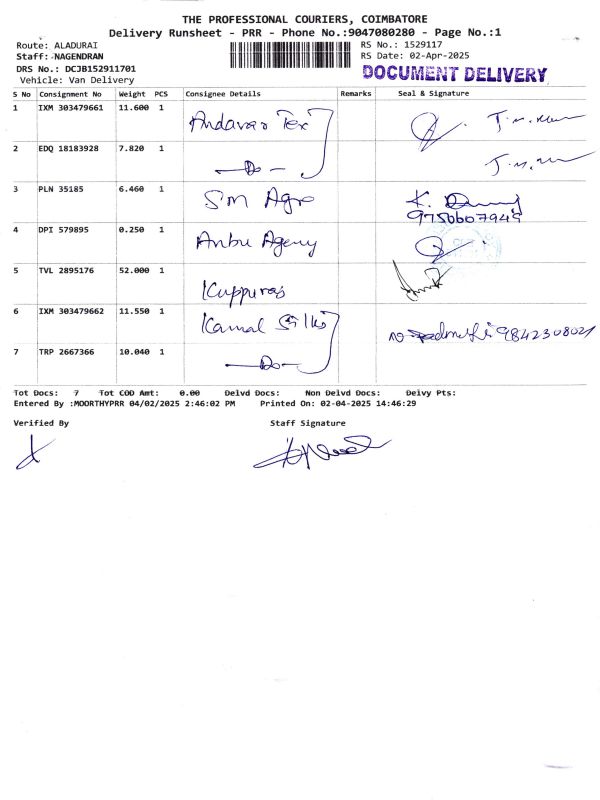 THE PROFESSIONAL COURIERS, COIMBATORE
Delivery Runsheet - PRR - Phone No.:9047080280 - Page No.:1
Route: ALADURAI RS No.: 1529117
Staff: NAGENDRAN RS Date: 02-Apr-2025
DRS No.: DCJB152911701 DOCUMENT DELIVERY
Vehicle: Van Delivery
S No Consignment No Weight PCS Consignee Details Remarks Seal & Signature
1 IXM 303479661 11.600 1 Andavar Tex
2 EDQ 18183928 7.820 1 — Do —
3 PLN 35185 6.460 1 Sm Agro K.
9750607949
4 DPI 579895 0.250 1 Anbu Agency
5 TVL 2895176 52.000 1
6 IXM 303479662 11.550 1 Kamal Silks 9842308021
7 TRP 2667366 10.040 1 — Do —
Tot Docs: 7 Tot COD Amt: 0.00 Delvd Docs: Non Delvd Docs: Delvy Pts:
Entered By :MOORTHYPRR 04/02/2025 2:46:02 PM Printed On: 02-04-2025 14:46:29
Verified By Staff Signature